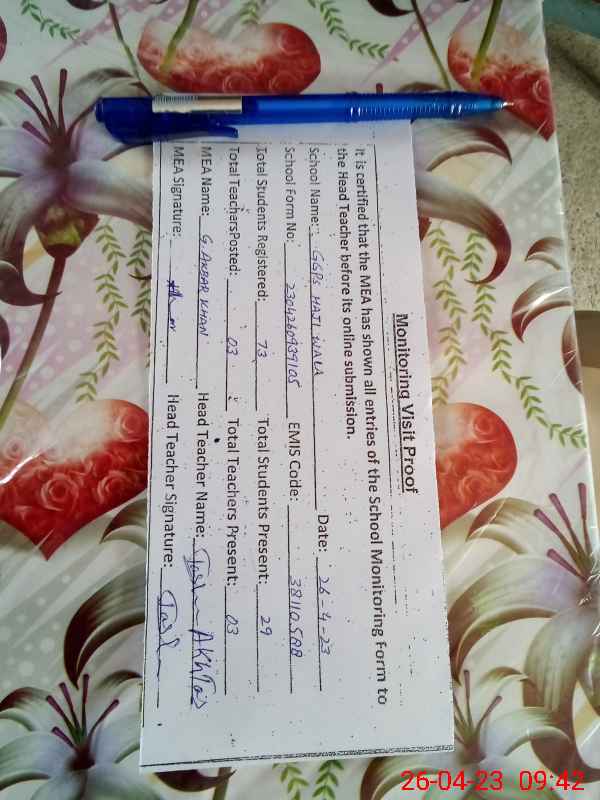 Monitoring Visit Proof
It is certified that the MEA has shown all entries of the School Monitoring Form to
the Head Teacher before its online submission.
School Name: GGPS HAJI WALA Date: 26-4-23
School Form No: 2304260939105 EMIS Code: 38110588
Total Students Registered: 73 Total Students Present: 29
Total TeachersPosted: 03 Total Teachers Present: 03
MEA Name: G. AKBAR KHAN Head Teacher Name: AKhTar
MEA Signature: Head Teacher Signature:
26-04-23 09:42